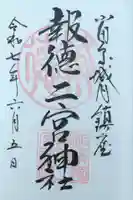 小田原城内鎮座
報徳二宮神社
令和七年六月五日